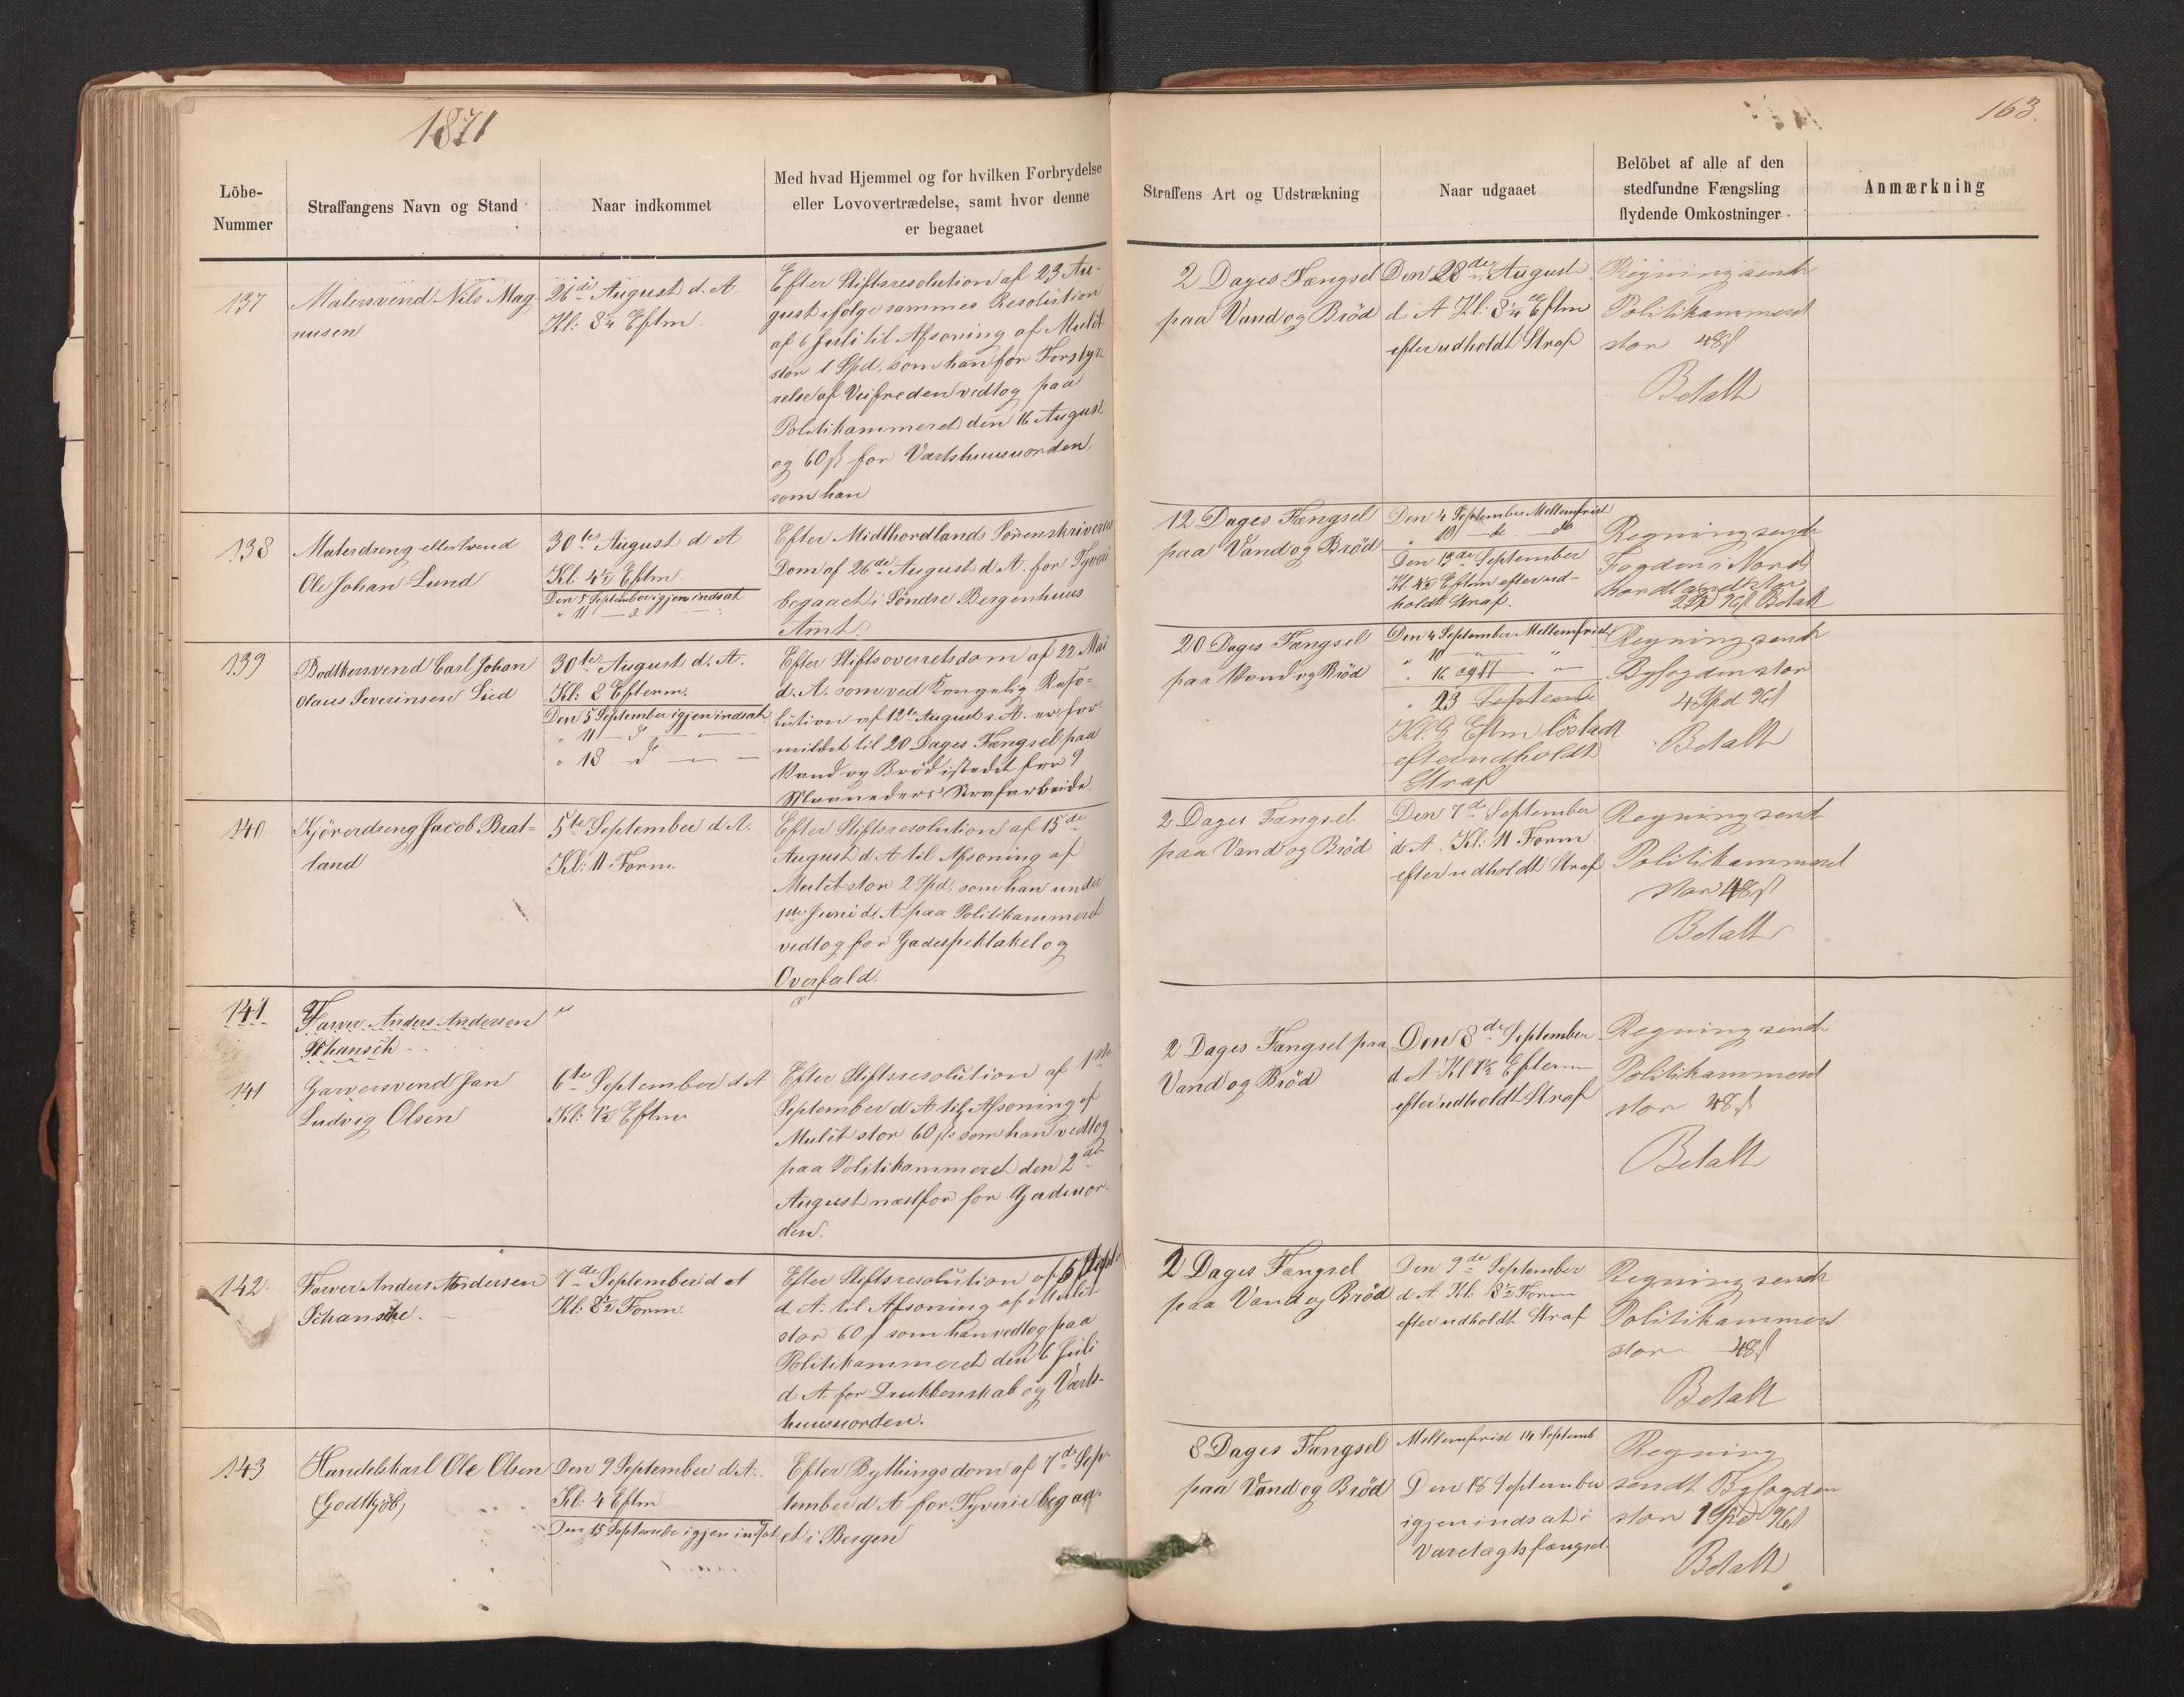 1871
163.
Löbe-
Nummer
Straffangens Navn og Stand
Naar indkommet
Med hvad Hjemmel og for hvilken Forbrydelse
eller Lovovertrædelse, samt hvor denne
er begaaet
Straffens Art og Udstrækning
Naar udgaaet
Belöbet af alle af den
stedfundne Fængsling
flydende Omkostninger
Anmærkning
137
Malersvend Nils Mag-
nusen
26de August d. A
Kl: 8¼ Eftm.
Efter Stiftsresolution af 23 Au-
gust ifölge sammes Resolution
af 6 Juli til Afsoning af Mulct
stor 1 Spd. som han for Forstyr-
relse af Veifreden vedtog paa
Politikammeret den 16 August
og 60 ß for Værtshuusuorden,
som han
2 Dages Fængsel
paa Vand og Bröd
Den 28de August
d A Kl: 8¼ Eftm
efter udholdt Straf
Regning sendt
Politikammeret
stor 48ß
Betalt
138
Malerdreng eller Svend
Ole Johan Lund
30te August d A
Kl: 4½ Eftm.
Den 5 September igjen indsat
" 11 — d —
Efter Midthordlands Sörenskriveries
Dom af 26de August d A. for Tyveri
begaaet i Söndre Bergenhuus
Amt.
12 Dages Fængsel
paa Vand og Bröd
Den 4 September Mellemfrist
" 10 do do
Den 13de September
Kl 4½ Eftm efter ud-
holdt Straf.
Regning sendt
Fogden i Nord
hordland stor
2 Sp 96ß Betalt
139
Bödtkersvend Carl Johan
Olaus Severinsen Lied
30te August d. A.
Kl: 8 Efterm.
Den 5 September igjen indsat
" 11 — d — —
" 18 d — —
Efter Stiftsoverretsdom af 22 Mai
d. A. som ved Kongelig Reso-
lution af 12te August s. A. er for-
mildet til 20 Dages Fængsel paa
Vand og Bröd istedet for 9
Maaneders Strafarbeide.
20 Dages Fængsel
paa Vand og Bröd
Den 4 September Mellemfrist
" 10 " "
" 16 og 17 — " —
" 23 Septembe
Kl. 9 Eftm lösladt
efter udholdt
Straf
Regning sendt
Byfogden stor
4 Spd 96ß
Betalt
140
Kjörerdreng Jacob Brat-
land
5te September d. A.
Kl: 11 Form.
Efter Stiftsresolution af 15de
August d. A til Afsoning af
Mulct stor 2 Spd. som han under
1ste Juni d. A. paa Politikammeret
vedtog for Gadespektakel og
Overfald.
2 Dages Fængsel
paa Vand og Bröd
Den 7de September
d. A. Kl: 11 Form
efter udholdt Straf
Regning sendt
Politikammeret
stor 48ß
Betalt
141
Farver Anders Andersen
Schansch
141
Garversvend Jan
Ludvig Olsen
6te September d A
Kl: 7½ Eftm
Efter Stiftsresolution af 1ste
September d A til Afsoning af
Mulct stor 60 ß som han vedtog
paa Politikammeret den 2de
August næstfor for Gadeuor-
den.
2 Dages Fængsel paa
Vand og Bröd
Den 8de September
d A Kl 7½ Efterm
efter udholdt Straf
Regning sendt
Politikammeret
stor 48ß
Betalt
142.
Farver Anders Andersen
Schansche.
7de September d A
Kl: 8½ Form.
Efter Stiftsresolution af 5 Sept
d. A. til Afsoning af Mulct
stor 60 ß som han vedtog paa
Politikammeret den 6 Juli
d. A. for Drukkenskab og Værts-
huusuorden.
2 Dages Fængsel
paa Vand og Bröd
Den 9de September
d. A. Kl: 8½ Form
efter udholdt Straf
Regning sendt
Politikammeret
stor 48ß
Betalt
143
Handelskarl Ole Olsen
(Godtkjöb)
Den 9 September d. A.
Kl: 4 Eftm
Den 15 Septembe igjen indsat
Efter Bythingsdom af 7de Sep-
tember d A for Tyverie begaa-
et i Bergen
8 Dages Fængsel
paa Vand og Bröd
Mellemfrist 14 Septemb
Den 18 September
igjen indsat i
Varetægtsfængsel
Regning
sendt Byfogden
stor 1 Spd 96ß
Betalt